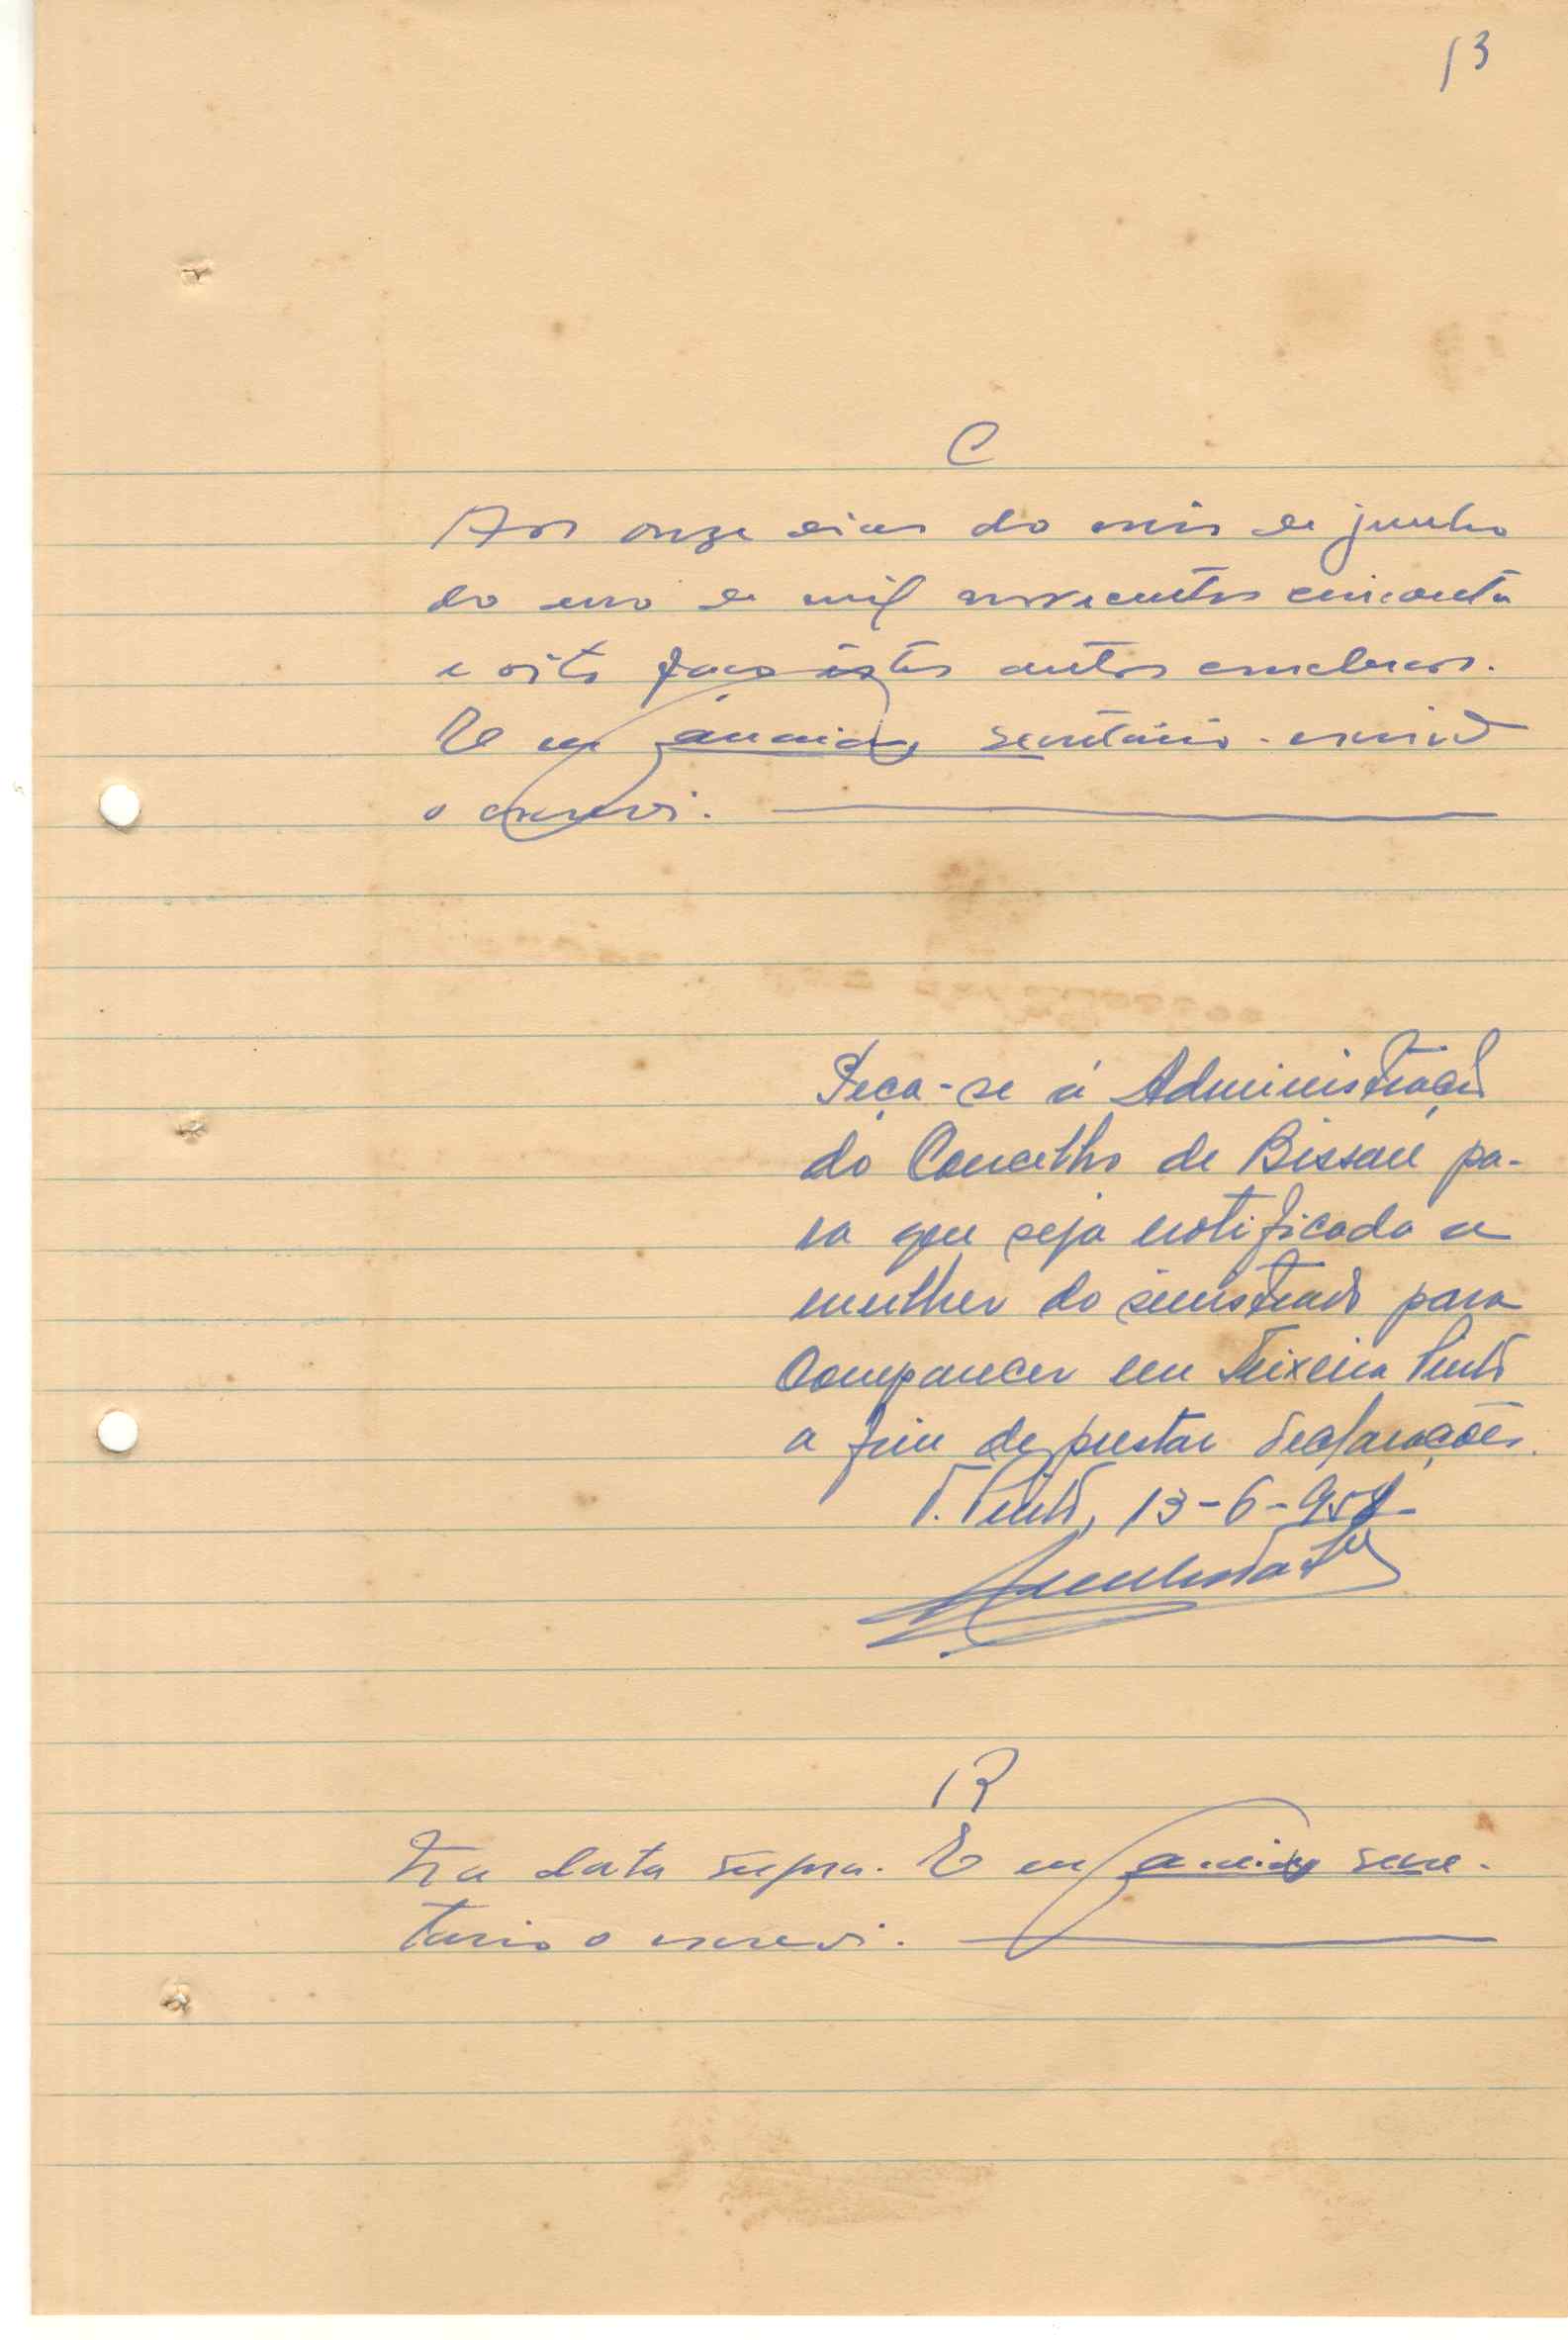 13
C
Aos onze dias do mês de junho
do ano de mil novecentos cincoenta
e oito faço êstes autos conclusos.
E eu secretário
o escrevi.
Peça-se à Administração
do Concelho de Bissau pa-
ra que seja notificada a
mulher do sinistrado para
comparecer em Teixeira Pinto
a fim de prestar declarações.
T. Pinto, 13-6-958
R
Na data supra. E eu secre-
tario o escrevi.